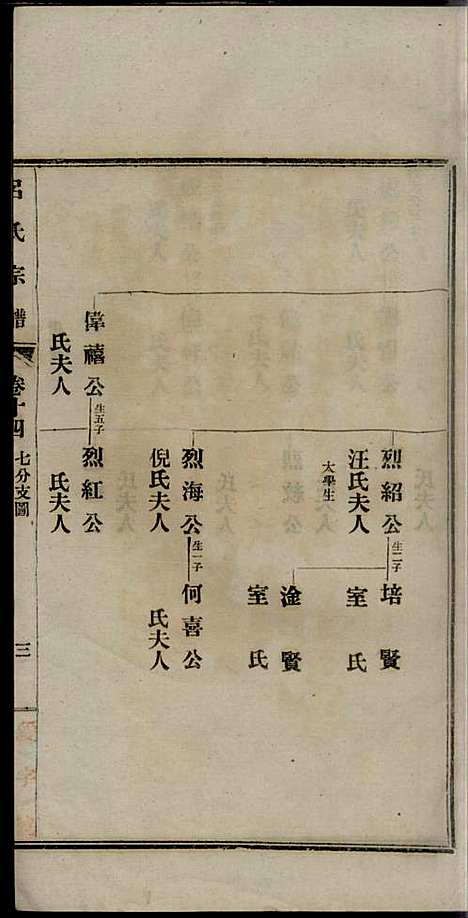 烈紹公 生二子 培賢
汪氏夫人 室氏
太學生
淦賢
室氏
烈海公 生一子 何喜公
倪氏夫人 氏夫人
偉禧公 生五子 烈紅公
氏夫人 氏夫人
呂氏宗譜 卷十四 七分支圖 三